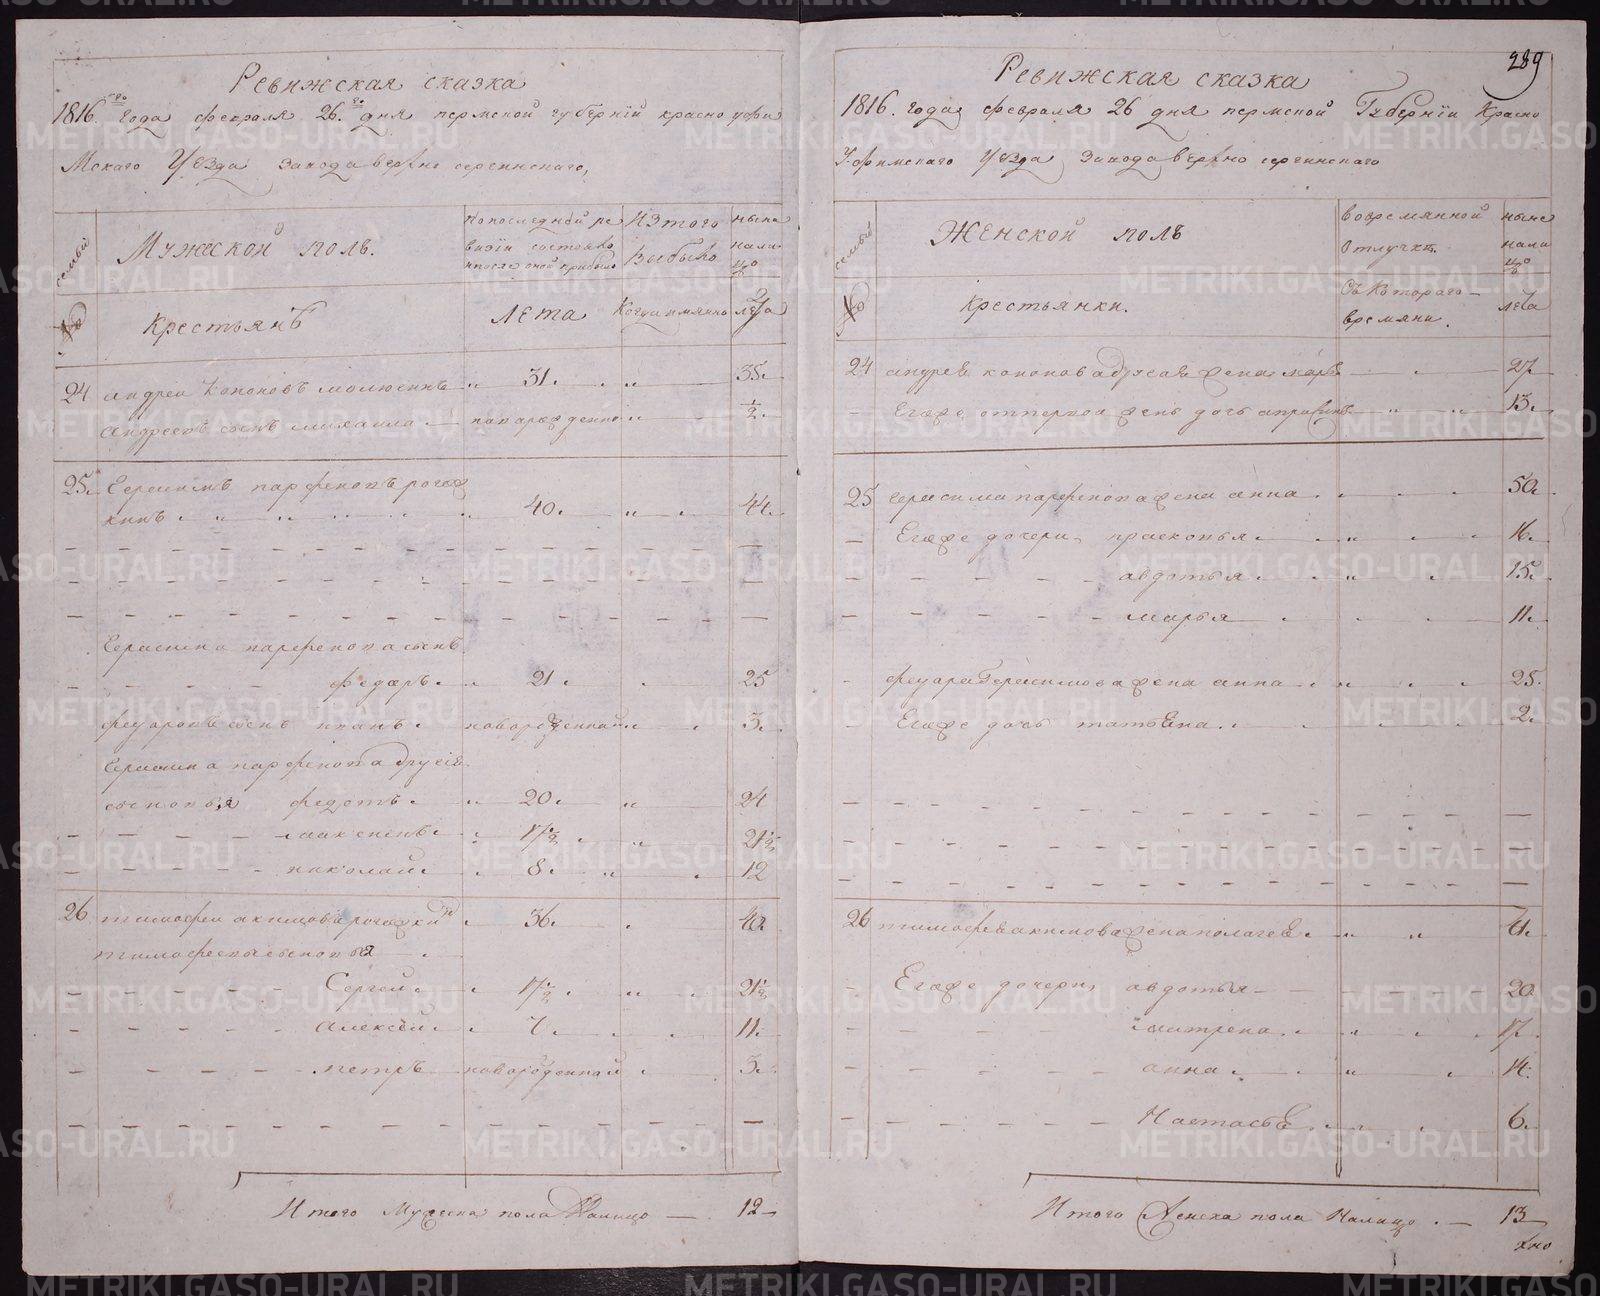 Ревижская сказка
1816. года февраля 26. дня пермской губернïи красно уфи
Мскаго Уезда Завода верхно сергинскаго,
семьи
Мужской полъ.
попоследнѣй ре
визïи состояло
ипосле оной прибыло
Изтого
Выбыло
ныне
нали
цо
№
Крестьянъ
Лета
Когда имянно
лета
24 андреи кононовъ 31. 35.
андреевъ сынъ михаила новорожденно 1/2.
25. Герасимъ парфеновъ рогож
кинъ 40. 44.
Герасима парфенова сынъ
федоръ. 21. 25
федоровъ сынъ иванъ. новорожденной 3.
Герасима парфенова другïя
сыновья федотъ. 20. 24
максимъ. 17 1/2. 21 1/2
николай. 8. 12
26 тимофеи акимовъ рогожкинъ 36. 40.
тимофеевы сыновья
Сергей. 17 1/2. 21 1/2
алексеи. 7. 11.
петръ новорожденной 3.
Итого Мужеска пола Налицо — 12
289
Ревижская сказка
1816. года февраля 26 дня пермской Губернïи Красно
Уфимскаго Уезда Завода верхно сергинскаго
семьи
Женской полъ
вовремянной
Отлучкѣ.
ныне
нали
цо
№
крестьянки.
Съ Котораго
времяни.
лета
24 андрея кононова жена 27
Егоже отпервой жены дочь 13.
25 герасима парфенова жена анна. 50.
Егоже дочери, прасковья. 16.
авдотья. 15.
марья 11.
федора Герасимова жена анна 25.
Егоже дочь татьяна. 2.
26 тимофея акимова жена 41.
Егоже дочери, авдотья 20
матрена. 17
анна. 14.
Настасья 6.
Итого Женска пола Налицо. — 13
METRIKI.GASO-URAL.RU